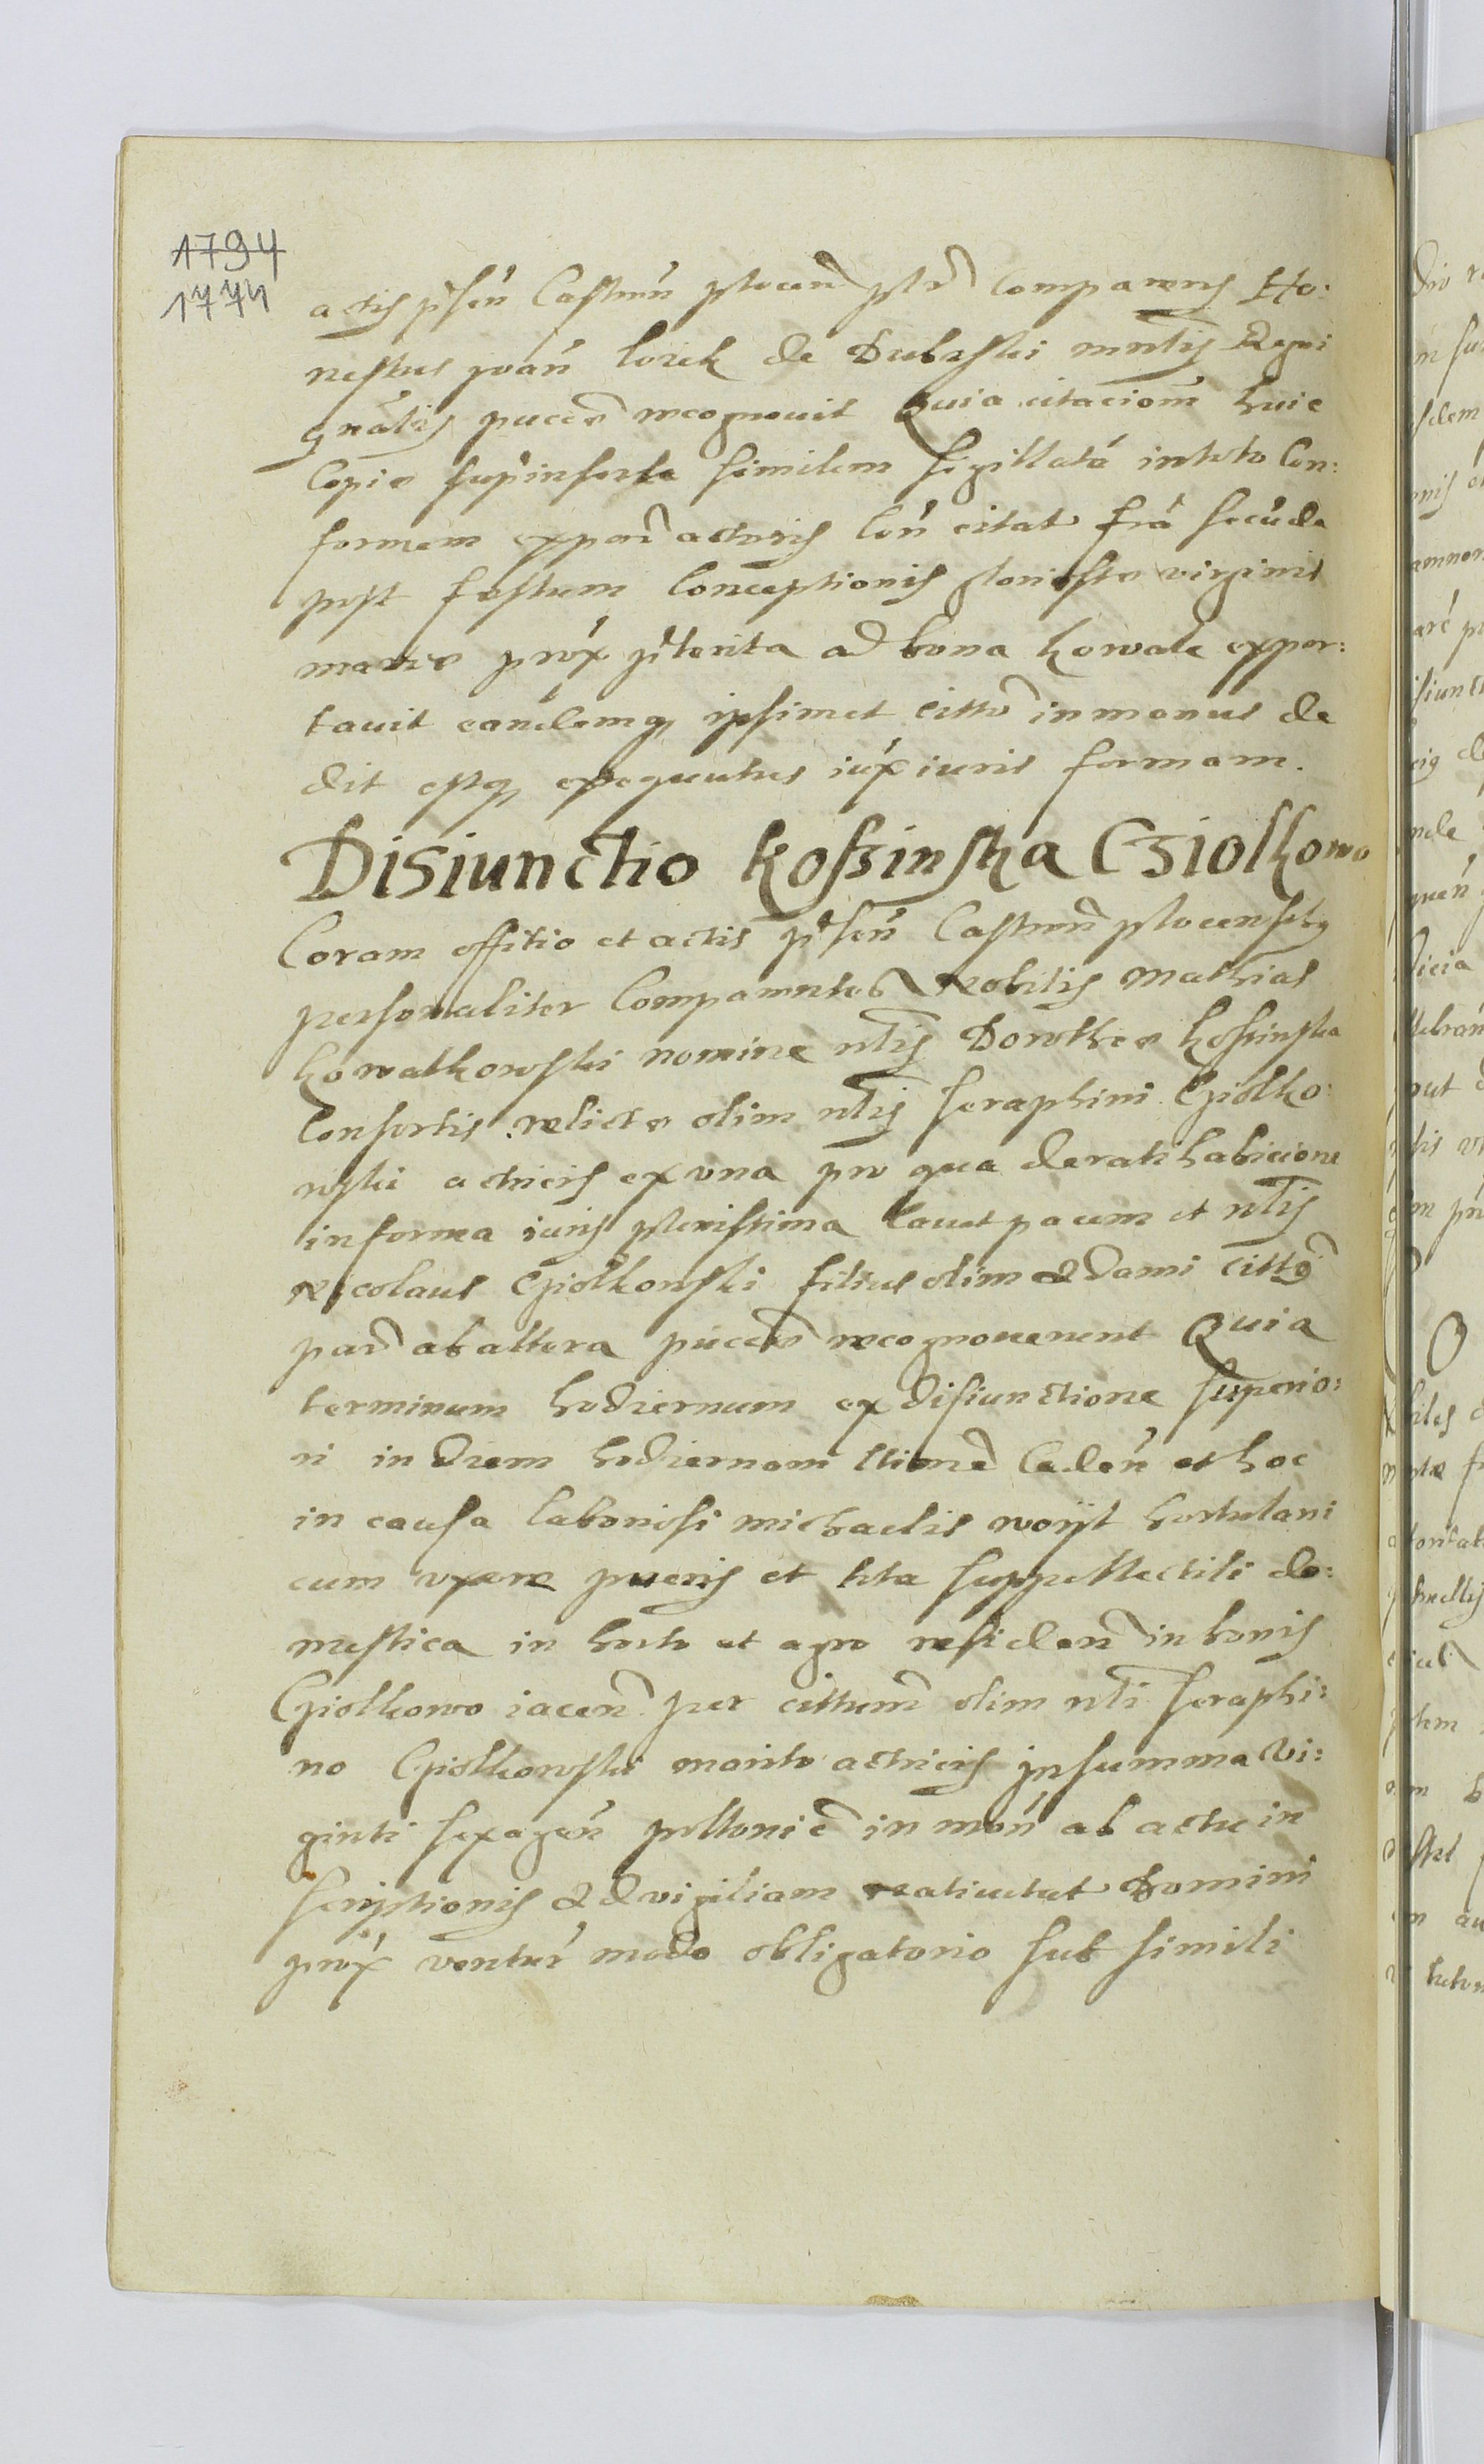 1794
1774
actis pñsen̄ Castren̄ plocen̄ plr̄ Comparens Ho:
nestus Joan̄ lorek de Dubrski mntlis Regni
gnālis puccē recognovit Quia citacionē huic
Copie supinserte similem sigillatā in toto Con:
formem ex par̄ actoris Con̄ citat fr̄a secūda
post festum Conceptionis gloriose virginis
marie prox̄ pt̄erita ad bona kowale expor:
tavit eandemq ipsimet citto in manus de
dit estq exequutus iux̄ iuris formam.
Disiunctio Kossinska Cziolkowo
Coram offitio et actis pn̄sen̄ Castren̄ plocensibq
personaliter Comparentes Nobilis Mathias
kowalkowski nomine nlis Dorothee kossinska
Consortis relicte olim nlis Seraphini Cziolko:
wski actricis ex una pro qua de rati habicione
in forma iuris plenissima Cavet pacem et nlis
Nicolaus Cziolkowski filius olim Adami Cittq
par̄ ab altera puccē recognoverunt Quia
terminum hodiernum ex disiunctione superio:
ri in diem hodiernam Caden̄ et hoc
in causa laboriosi michaelis woyt hortulani
cum uxore pueris et tota suppellectili do:
mestica in horto et agro residen̄ in bonis
Cziolkowo iacen̄ per cittum̄ olim nli Seraphi:
no Cziolkowski marito actricis in summa vi:
ginti sexagen̄ pollonicē in mon̄ ab actu in
scriptionis Ad vigiliam Nativitat Domini
prox̄ ventur̄ modo obligatorio sub simili